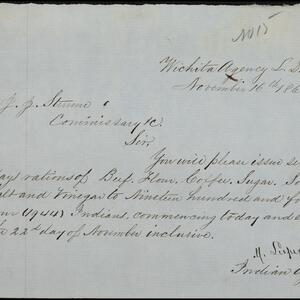 No 15
Wichita Agency L.
November 16th 186
J. J. Sturm
Commissary &C.
Sir
You will please issue se
days rations of Beef, Flour, Coffee, Sugar,
and Vinegar to Nineteen hundred and
(1944) Indians, commencing today and
22nd day of November inclusive.
Indian